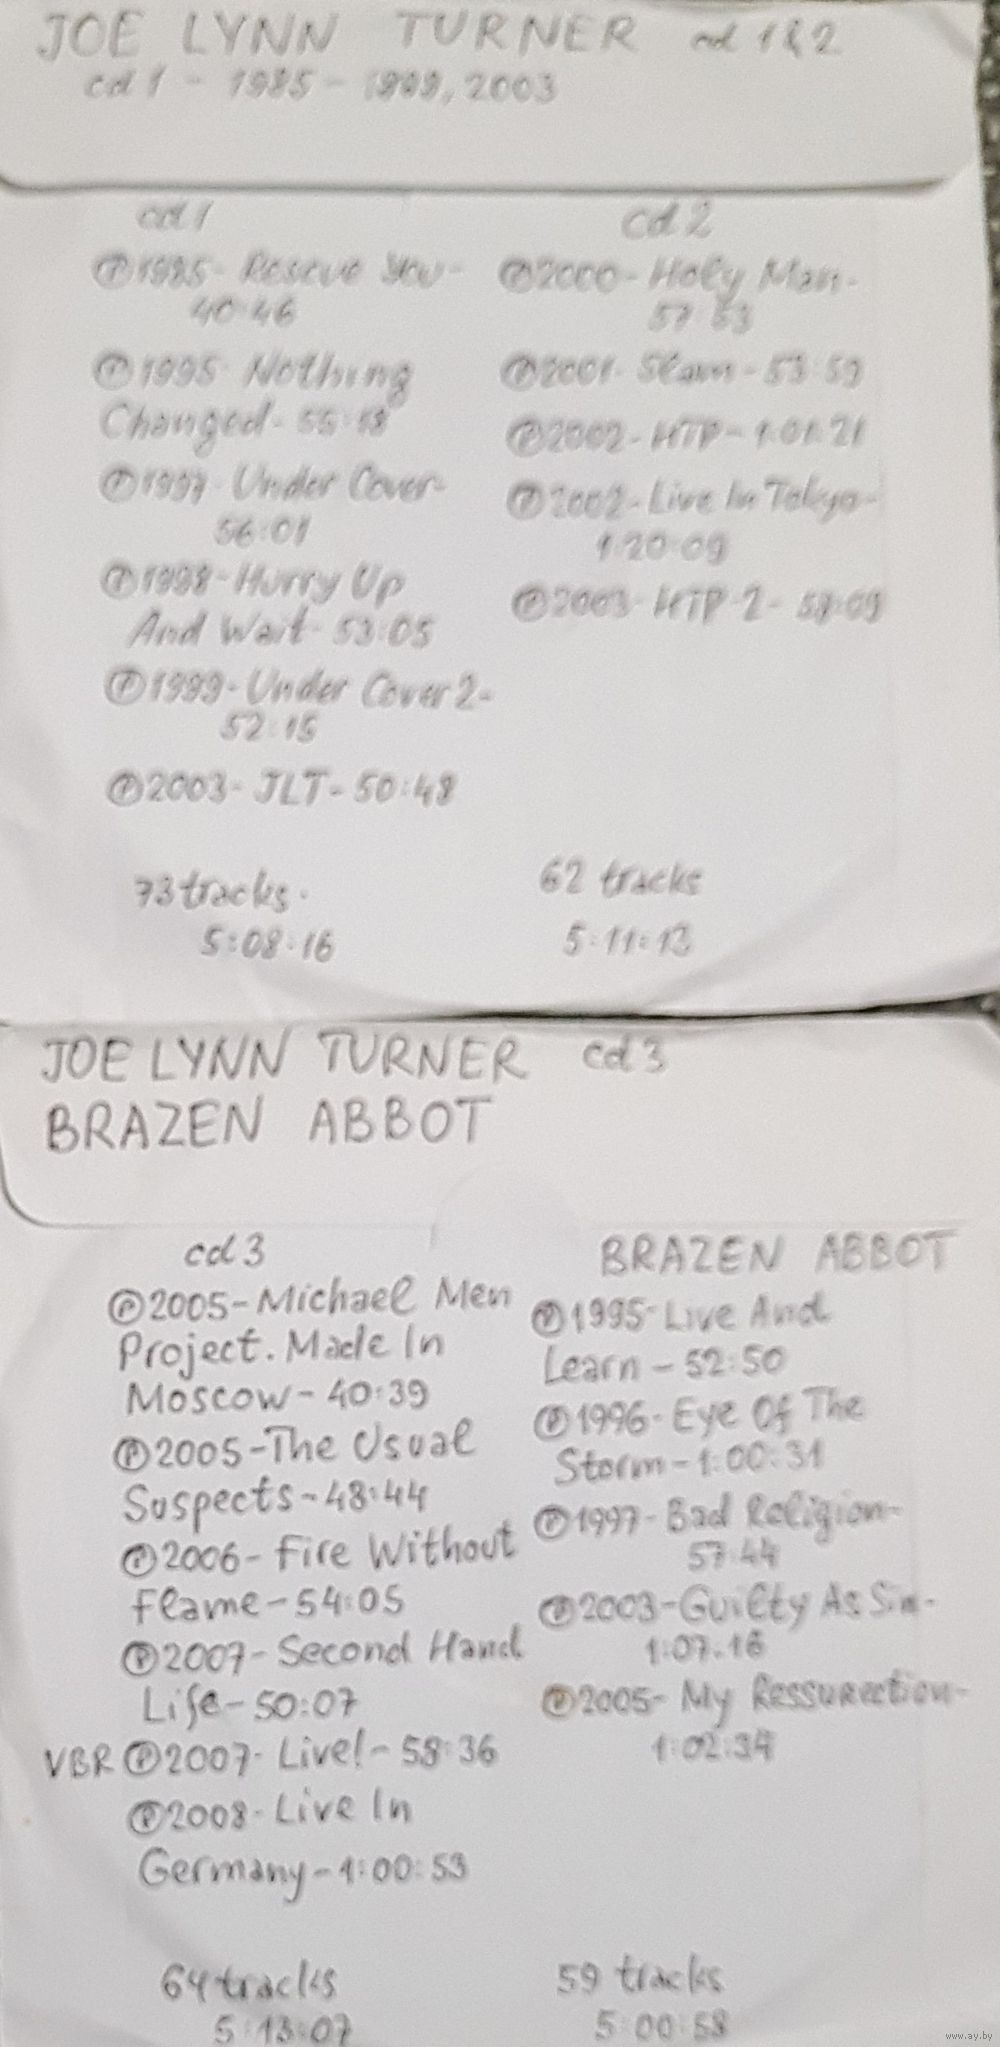 JOE LYNN TURNER cd 1 & 2
cd 1 - 1985 - 1999, 2003
cd 1
Ⓟ1985 - Rescue You -
40:46
Ⓟ1995 Nothing
Changed - 55:18
Ⓟ1997 - Under Cover -
56:01
Ⓟ1998 - Hurry Up
And Wait - 53:05
Ⓟ1999 - Under Cover 2 -
52:15
Ⓟ2003 - JLT - 50:48
73 tracks.
5:08:16
cd 2
Ⓟ2000 - Holy Man -
57:53
Ⓟ2001 - Slam - 53:59
Ⓟ2002 - HTP - 1:01:21
Ⓟ2002 - Live In Tokyo -
1:20:09
Ⓟ2003 - HTP 2 - 58:09
62 tracks
5:11:13
JOE LYNN TURNER cd 3
BRAZEN ABBOT
cd 3
Ⓟ2005 - Michael Men
Project. Made In
Moscow - 40:39
Ⓟ2005 - The Usual
Suspects - 48:44
Ⓟ2006 - Fire Without
Flame - 54:05
Ⓟ2007 - Second Hand
Life - 50:07
VBR Ⓟ2007 - Live! - 58:36
Ⓟ2008 - Live In
Germany - 1:00:53
64 tracks
5:13:07
BRAZEN ABBOT
Ⓟ1995 - Live And
Learn - 52:50
Ⓟ1996 - Eye Of The
Storm - 1:00:31
Ⓟ1997 - Bad Religion -
57:44
Ⓟ2003 - Guilty As Sin -
1:07:16
Ⓟ2005 - My Ressurection -
1:02:34
59 tracks
5:00:58
www.ay.by